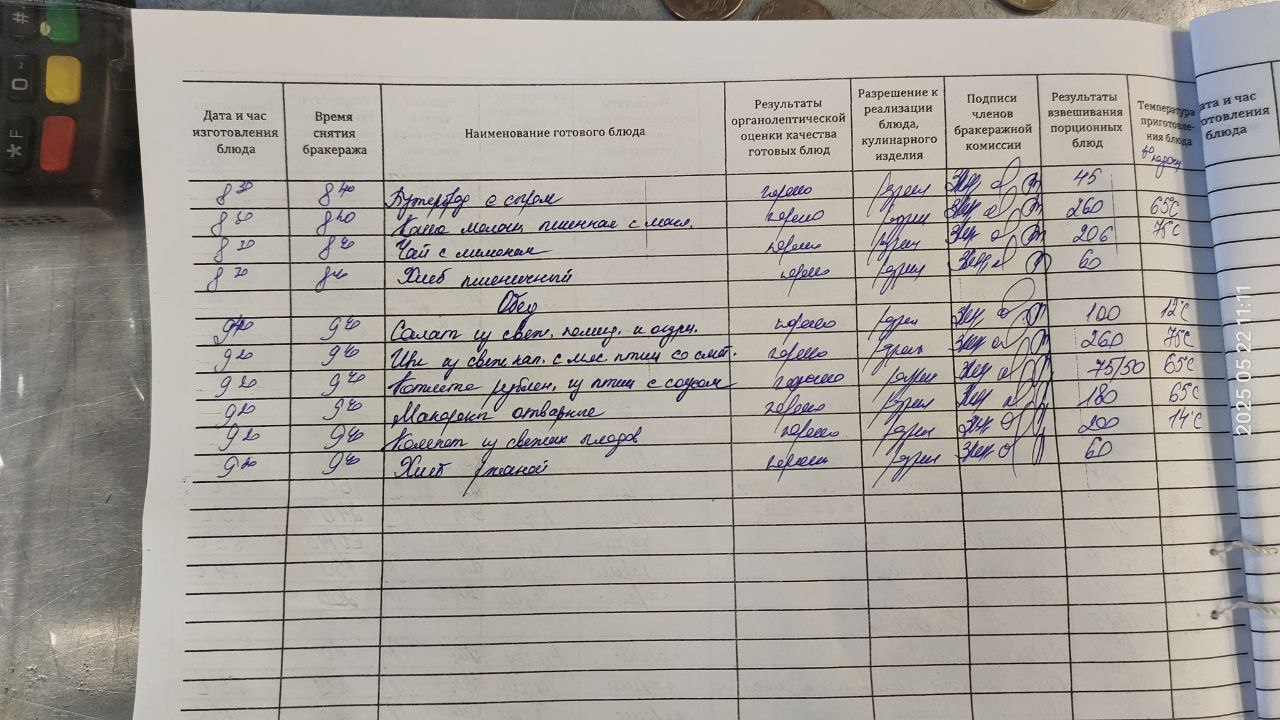 # O * F
Дата и час изготовления блюда
Время снятия бракеража
Наименование готового блюда
Результаты органолептической оценки качества готовых блюд
Разрешение к реализации блюда, кулинарного изделия
Подписи членов бракеражной комиссии
Результаты взвешивания порционных блюд
Температура приготовле-ния блюда
8 30 8 40 Бутерброд с сыром хорошо 45
8 20 8 40 Каша молоч. пшенная с масл. хорошо 260 65°С
8 20 8 40 Чай с лимоном хорошо 206 75°С
8 20 8 40 Хлеб пшеничный хорошо 60
Обед
9 20 9 40 Салат из свеж. помид. и огурц. хорошо 100 12°С
9 20 9 40 Щи из свеж. кап. с мяс. птиц со смет. хорошо 260 75°С
9 20 9 40 Котлета рублен. из птиц с соусом хорошо 75/50 65°С
9 20 9 40 Макароны отварные хорошо 180 65°С
9 20 9 40 Компот из свежих плодов хорошо 200 14°С
9 20 9 40 Хлеб ржаной хорошо 60
ата и час
отовления
блюда
2025 05 22 11:11